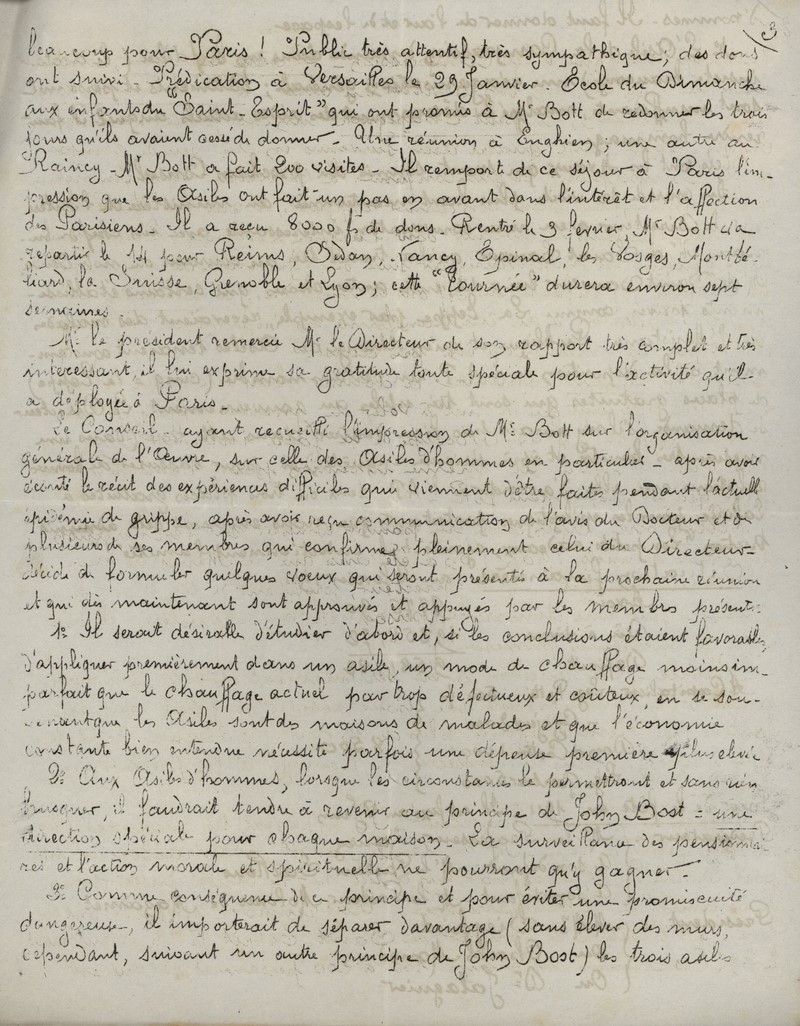 3
beaucoup pour Paris ! Public très attentif, très sympathique ; des dons
ont suivi - Prédication à Versailles le 29 Janvier - École du Dimanche
aux enfants du "Saint-Esprit" qui ont promis à Mr Bott de redonner les trois
jours qu'ils avaient cessé de donner - Une réunion à Enghien ; une autre au
Raincy - Mr Bott a fait 200 visites - Il remporte de ce séjour à Paris l'im-
pression que les Asiles ont fait un pas en avant dans l'intérêt et l'affection
des Parisiens - Il a reçu 8000 f de dons. Rentré le 3 février, Mr Bott va
repartir le 14 pour Reims, Sedan, Nancy, Epinal, les Vosges, Montbé-
liard, la Suisse, Grenoble et Lyon ; cette "tournée" durera environ sept
semaines.
Mr le président remercie Mr le Directeur de son rapport très complet et très
intéressant, il lui exprime sa gratitude toute spéciale pour l'activité qu'il
a déployée à Paris -
Le Conseil - ayant recueilli l'impression de Mr Bott sur l'organisation
générale de l'Œuvre, sur celle des Asiles d'hommes en particulier - après avoir
écouté le récit des expériences difficiles qui viennent d'être faites pendant l'actuelle
épidémie de grippe, après avoir reçu communication de l'avis du Docteur et de
plusieurs de ses membres qui confirme pleinement celui du Directeur -
décide de formuler quelques voeux qui seront présentés à la prochaine réunion
et qui dès maintenant sont approuvés et appuyés par les membres présents :
1º Il serait désirable d'étudier d'abord et, si les conclusions étaient favorables,
d'appliquer premièrement dans un asile, un mode de chauffage moins im-
parfait que le chauffage actuel par trop défectueux et coûteux, en se sou-
venant que les Asiles sont des maisons de malades et que l'économie
constante bien entendue nécessite parfois une dépense première plus élevée
2º Aux Asiles d'hommes, lorsque les circonstances le permettront et sans rien
brusquer, il faudrait tendre à revenir au principe de John Bost : une
direction spéciale pour chaque maison. La surveillance des pensionnai-
res et l'action morale et spirituelle ne pourront qu'y gagner.
3º Comme conséquence de ce principe et pour éviter une promiscuité
dangereuse, il importerait de séparer davantage (sans élever des murs,
cependant, suivant un autre principe de John Bost) les trois asiles